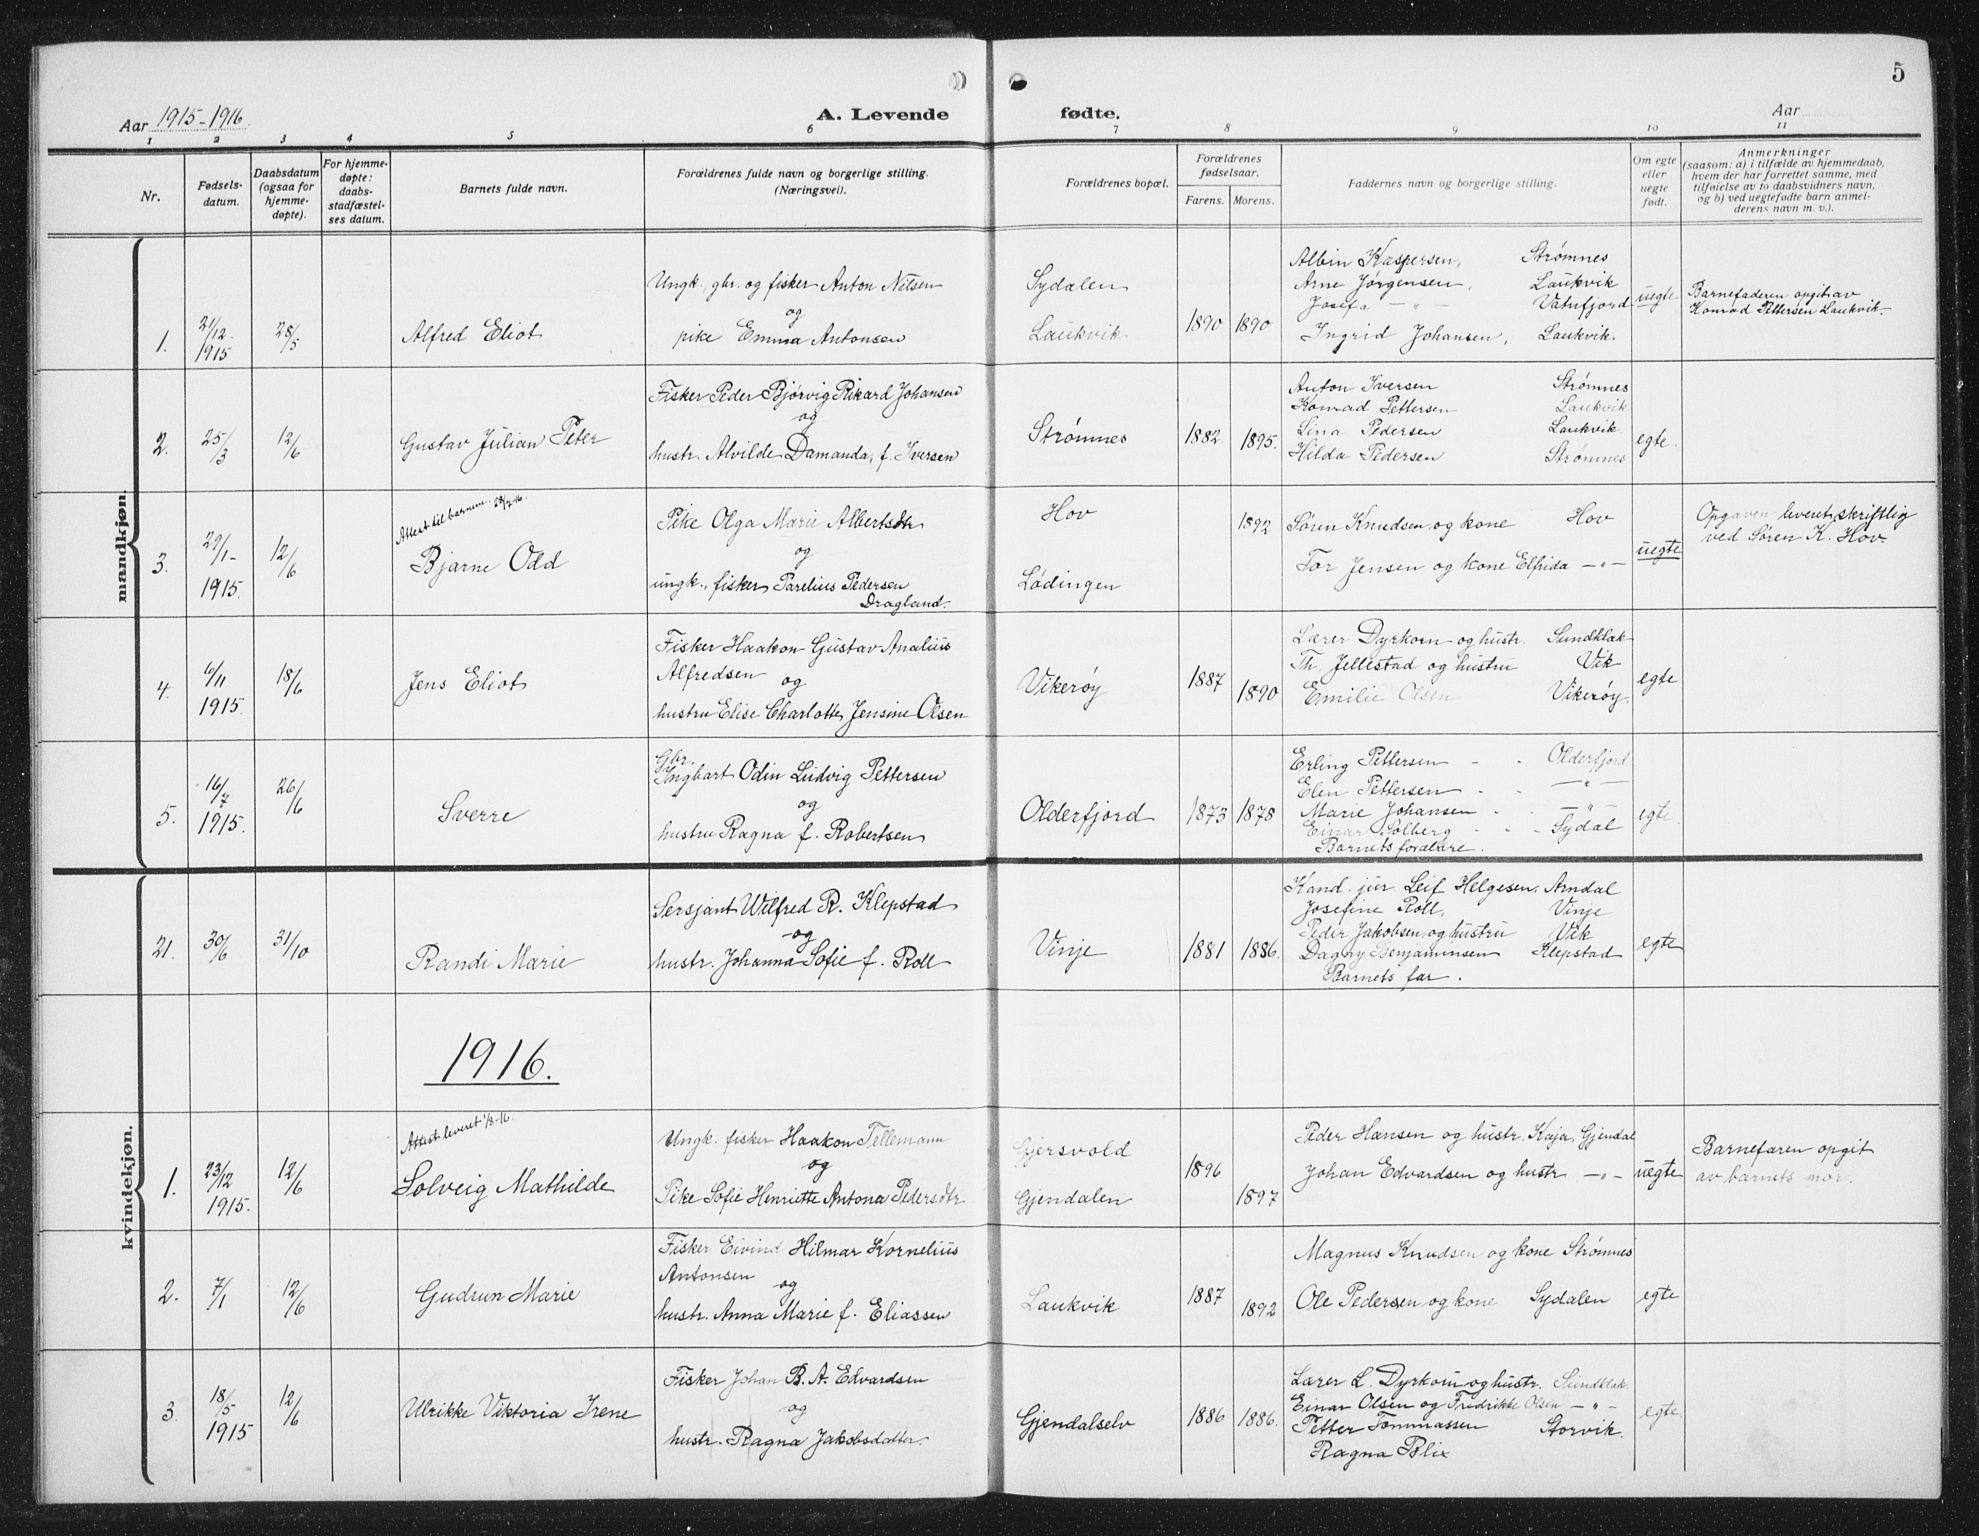 5
Aar 1915-1916.
A. Levende fødte.
Aar
1 2 3 4 5 6 7 8 9 10 11
Nr.
Fødsels-
datum.
Daabsdatum
(ogsaa for
hjemme-
døpte).
For hjemme-
døpte:
daabs-
stadfæstel-
ses datum.
Barnets fulde navn.
Forældrenes fulde navn og borgerlige stilling.
(Næringsvei).
Forældrenes bopæl.
Forældrenes
fødselsaar.
Farens. Morens.
Faddernes navn og borgerlige stilling.
Om egte
eller
uegte
født.
Anmerkninger
(saasom: a) i tilfælde av hjemmedaab,
hvem der har forrettet samme, med
tilføielse av to daabsvidners navn,
og b) ved uegtefødte barn anmel-
derens navn m. v.).
mandkjøn.
1.
21/12
1915
28/5
Alfred Eliot
Ungk., gbr. og fisker Anton Nilsen
og
pike Emma Antonsen
Sydalen
Laukvik
1890 1890
Albin Kaspersen, Strømnes
Arne Jørgensen, Laukvik
Josefa -"- Vatnfjord
Ingrid Johansen, Laukvik
uegte
Barnefaderen opgit av
Konrad Pettersen Laukvik.
2.
25/3
12/6
Gustav Julian Peter
Fisker Peder Bjørvig Rikard Johansen
og
hustr. Alvilde Damanda, f. Iversen
Strømnes
1882 1895.
Anton Iversen Strømnes
Konrad Pettersen Laukvik
Lina Pedersen Laukvik
Hilda Pedersen Strømnes
egte.
3.
29/1-
1915.
12/6
Attest til barnem. 28/7-16
Bjarne Odd
Pike Olga Marie Albertsdtr
og
ungk., fisker Parelius Pedersen
Dragland.
Hov
Lødingen
1892
Søren Knudsen og kone Hov
Tor Jensen og kone Elfrida -"-
uegte
Opgaven leveret skriftlig
ved Søren K. Hov.
4.
6/11
1915.
18/6
Jens Eliot
Fisker Haakon Gustav Analius
Alfredsen og
hustru Elise Charlotte Jensine Olsen
Vikerøy
1887 1890
Lærer Dyrkorn og hustr. Sundklak
Th. Jellestad og hustru Vik
Emilie Olsen Vikerøy.
egte
5.
16/7
1915.
26/6
Sverre
Gbr.
Ingbart Odin Ludvig Pettersen
og
hustru Ragna f. Robertsen
Olderfjord
1873 1878
Erling Pettersen - - Olderfjord
Elen Pettersen - - -"-
Marie Johansen - - -"-
Einar Solberg - - Sydal
Barnets forældre.
egte.
kvindekjøn.
21.
30/6
31/10
Randi Marie
Sersjant Wilfred R. Klepstad
og
hustr. Johanna Sofie f. Roll
Vinje
1881 1886.
Kand. jur. Leif Helgesen, Arndal
Josefine Roll, Vinje
Peder Jakobsen og hustru Vik
Dagny Benjaminsen Klepstad
Barnets far.
egte
1916.
1.
23/12
1915.
12/6
Attest leveret 1/8-16.
Solveig Mathilde
Ungk. fisker Haakon Tellemann
og
Pike Sofie Henriette Antona Pedersdtr
Gjersvold
Gjendalen
1896 1897
Peder Hansen og hustr. Kaja, Gjendal
Johan Edvardsen og hustr -"-
uegte
Barnefaren opgit
av barnets mor.
2.
7/1
12/6
Gudrun Marie
Fisker Eivind Hilmar Kornelius
Antonsen og
hustr. Anna Marie f. Eliassen
Laukvik
1887 1892
Magnus Knudsen og kone Strømnes
Ole Pedersen og kone Sydalen
egte
3.
18/5
1915
12/6
Ulrikke Viktoria Irene
Fisker Johan B. A. Edvardsen
og
hustr. Ragna Jakobsdatter.
Gjendalselv
1886 1886.
Lærer L. Dyrkorn og hustr. Sundklak.
Einar Olsen og Fredrikke Olsen -"-
Petter Tommassen Storvik.
Ragna Blix
egte